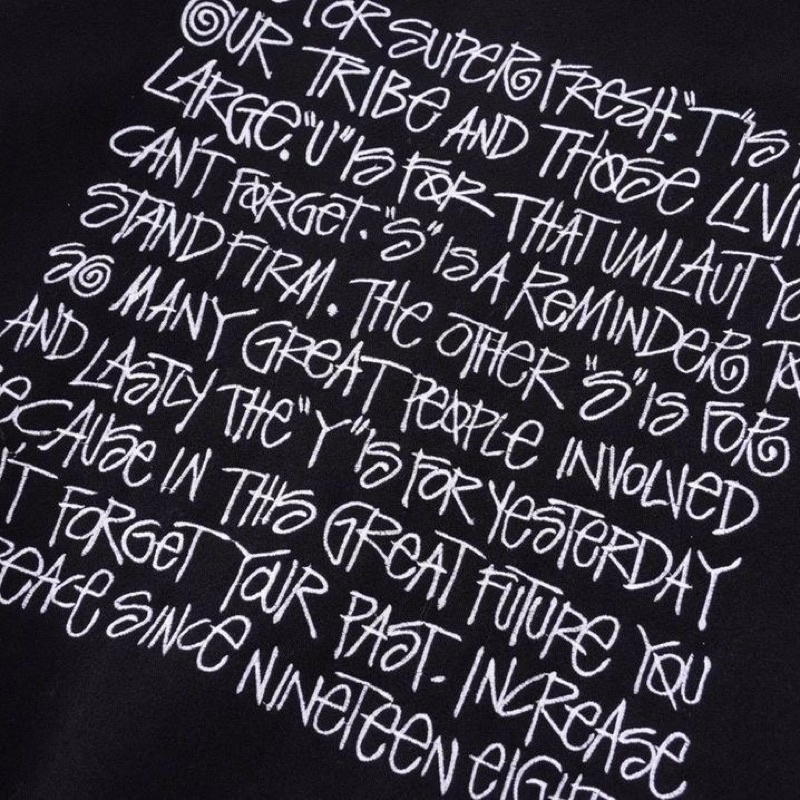 FOR SUPER FRESH. "T" IS
OUR TRIBE AND THOSE LIVI
LARGE. "U" IS FOR THAT UMLAUT YO
CAN'T FORGET. "S" IS A REMINDER TO
STAND FIRM. THE OTHER "S" IS FOR
SO MANY GREAT PEOPLE INVOLVED
AND LASTLY THE "Y" IS FOR YESTERDAY
BECAUSE IN THIS GREAT FUTURE YOU
'T FORGET YOUR PAST. INCREASE
PEACE SINCE NINETEEN EIGHT